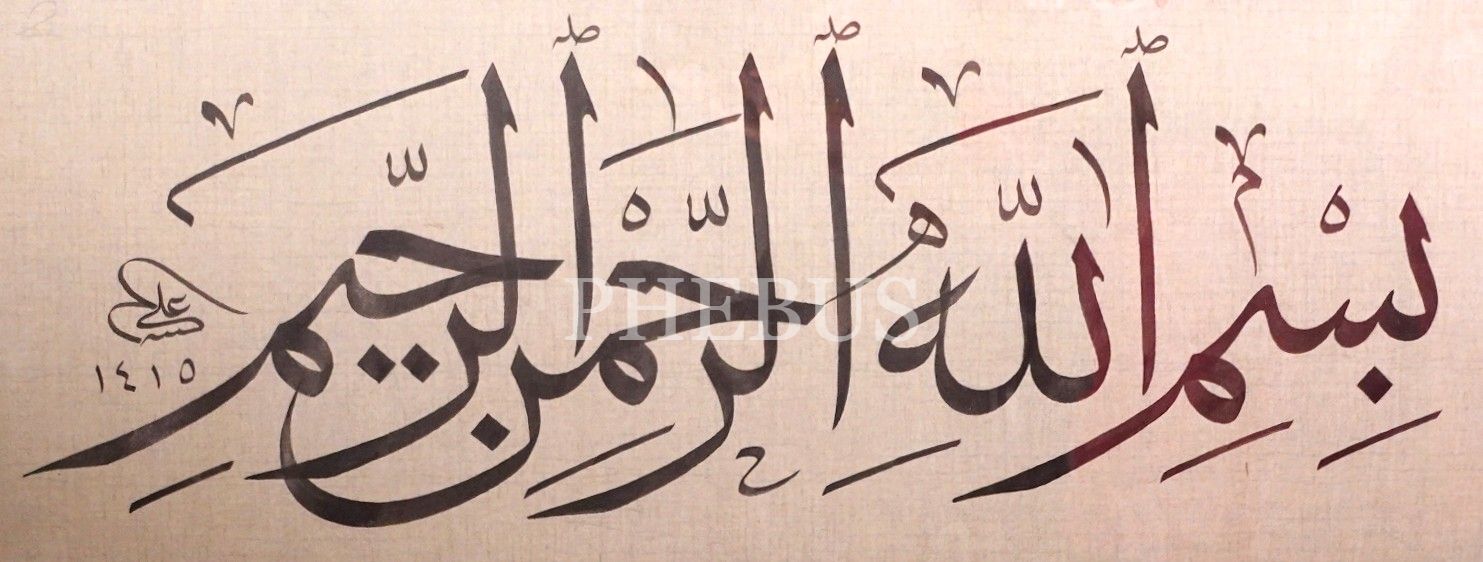 بِسْمِ ٱللَّهِ ٱلرَّحْمَٰنِ ٱلرَّحِيمِ
علي
١٤١٥
PHEBUS